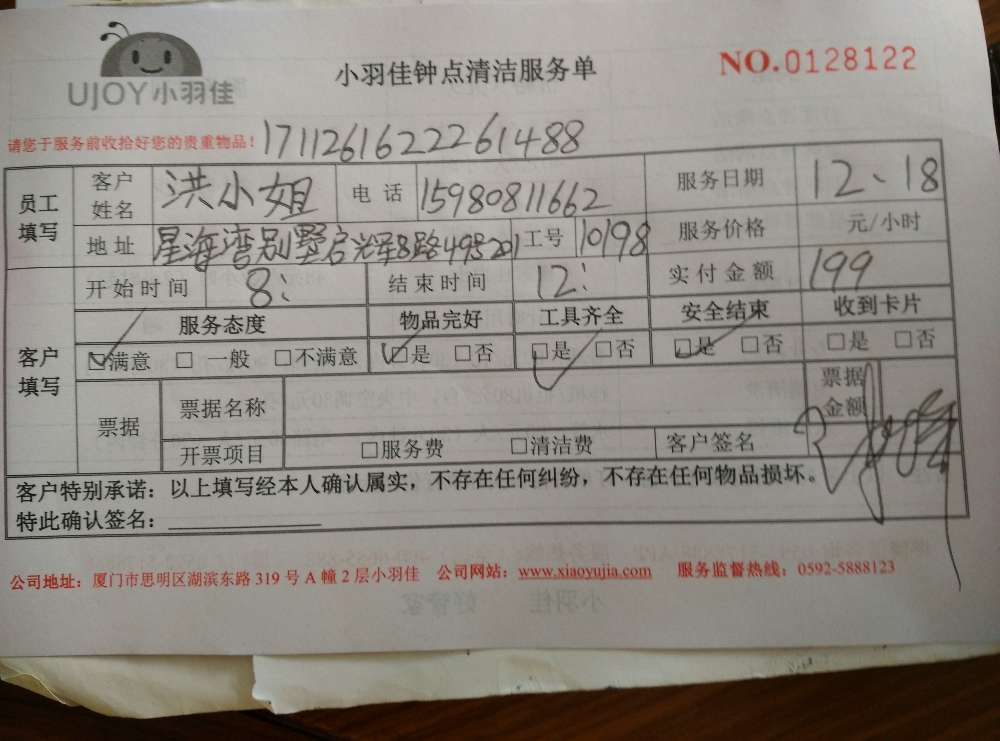 UJOY小羽佳
小羽佳钟点清洁服务单
NO.0128122
请您于服务前收拾好您的贵重物品！ 1711261622261488
员工填写 客户姓名 洪小姐 电话 15980811662 服务日期 12、18
地址 星海湾别墅 路49号201 工号 10198 服务价格 元/小时
开始时间 8: 结束时间 12: 实付金额 199
客户填写 服务态度 物品完好 工具齐全 安全结束 收到卡片
☑满意 □ 一般 □不满意 ☑是 □否 ☑是 □否 ☑是 □否 □是 □否
票据 票据名称 票据金额
开票项目 □服务费 □清洁费 客户签名
客户特别承诺：以上填写经本人确认属实，不存在任何纠纷，不存在任何物品损坏。
特此确认签名：
公司地址：厦门市思明区湖滨东路 319 号 A 幢 2 层小羽佳 公司网站：www.xiaoyujia.com 服务监督热线：0592-5888123